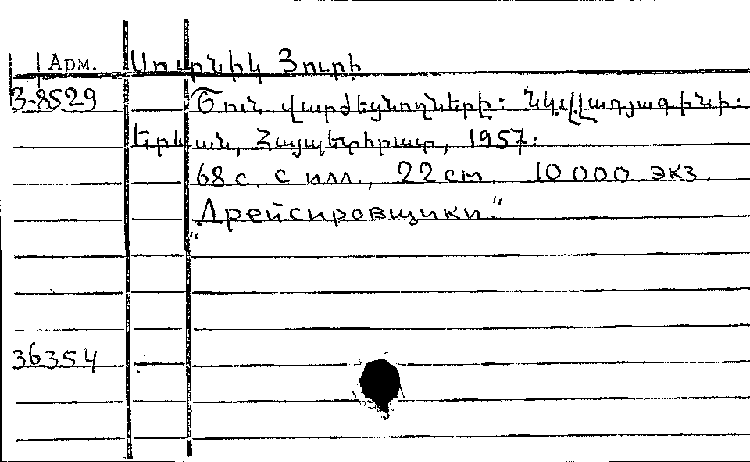 Арм. Սոտնիկ Յուրի
3-8529 Շուն վարժեցնողները: Նկ. Վլադագինի:
Երևան, Հայպետհրատ, 1957.
68 с. с илл., 22 cm. 10 000 экз.
"Дрейсировщики."
36354